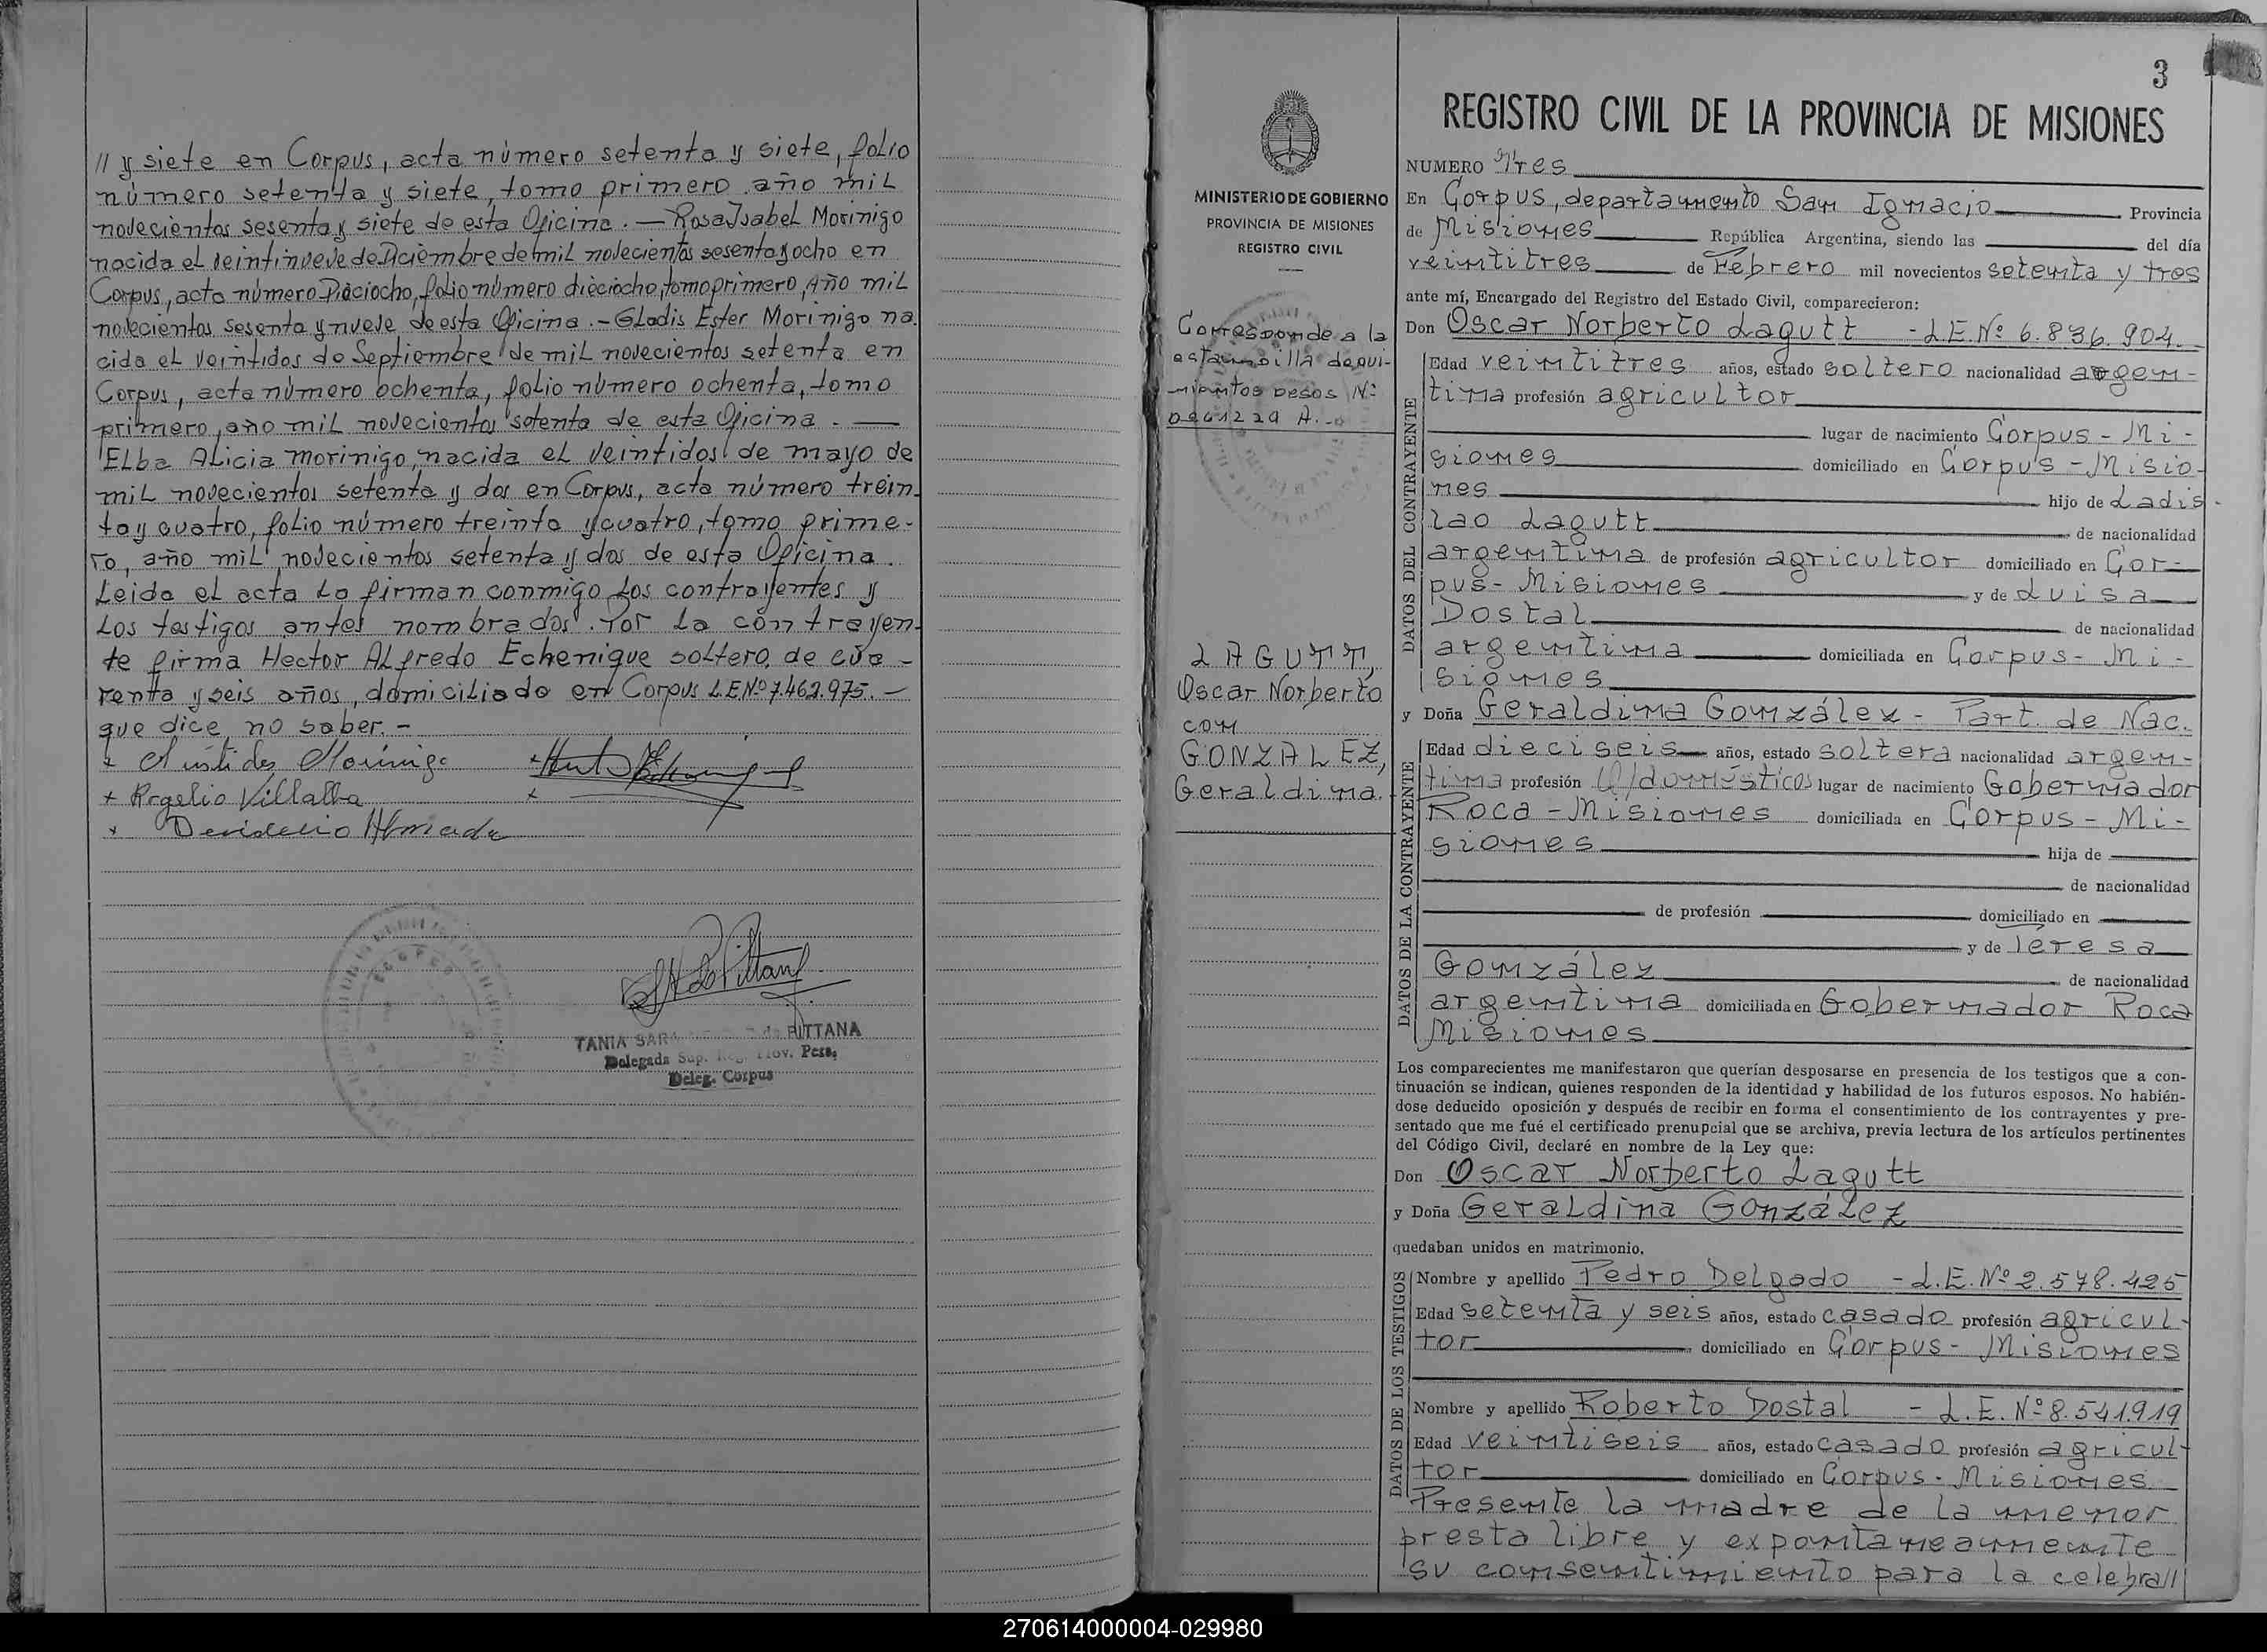 // y siete en Corpus, acta número setenta y siete, folio
número setenta y siete, tomo primero año mil
novecientos sesenta y siete de esta Oficina. — Rosa Isabel Morinigo
nacida el veintinueve de Diciembre de mil novecientos sesenta y ocho en
Corpus, acta número Dieciocho, folio número dieciocho, tomo primero, Año mil
novecientos sesenta y nueve de esta Oficina. - Gladis Ester Morinigo na
cida el veintidos de Septiembre de mil novecientos setenta en
Corpus, acta número ochenta, folio número ochenta, tomo
primero, año mil novecientos setenta de esta Oficina. —
Elba Alicia Morinigo, nacida el veintidos de mayo de
mil novecientos setenta y dos en Corpus, acta número trein-
ta y cuatro, folio número treinta y cuatro, tomo prime-
ro, año mil novecientos setenta y dos de esta Oficina.
Leida el acta la firman conmigo los contrayentes y
los testigos antes nombrados. Por la contrayen-
te firma Hector Alfredo Echenique soltero, de cua-
renta y seis años, domiciliado en Corpus L.E.Nº 7.462.975. -
que dice no saber. -
Aristides Morinigo
+ Rogelio Villalba
+ Almada
TANIA SARA PITTANA
Delegada Sup. Reg. Prov. Pers.
Deleg. Corpus
3
REGISTRO CIVIL DE LA PROVINCIA DE MISIONES
MINISTERIO DE GOBIERNO
PROVINCIA DE MISIONES
REGISTRO CIVIL
Corresponde a la
estampilla de qui-
nientos pesos Nº
0261229 A. -
LAGUTT,
Oscar Norberto
con
GONZALEZ,
Geraldina.
NUMERO Tres
En Corpus, departamento San Ignacio Provincia
de Misiones República Argentina, siendo las del día
veintitres de Febrero mil novecientos setenta y tres
ante mí, Encargado del Registro del Estado Civil, comparecieron:
Don Oscar Norberto Lagutt - L.E.Nº 6.836.904.
DATOS DEL CONTRAYENTE
Edad veintitres años, estado soltero nacionalidad argen-
tina profesión agricultor
lugar de nacimiento Corpus - Mi -
siones domiciliado en Corpus - Misio-
nes hijo de Ladis -
lao Lagutt de nacionalidad
argentina de profesión agricultor domiciliado en Cor-
pus - Misiones y de Luisa
Dostal de nacionalidad
argentina domiciliada en Corpus - Mi -
siones
y Doña Geraldina González - Part. de Nac.
DATOS DE LA CONTRAYENTE
Edad dieciseis años, estado soltera nacionalidad argen-
tina profesión Q/domésticos lugar de nacimiento Gobernador
Roca - Misiones domiciliada en Corpus - Mi -
siones hija de
de nacionalidad
de profesión domiciliado en
y de Teresa
González de nacionalidad
argentina domiciliada en Gobernador Roca
Misiones
Los comparecientes me manifestaron que querían desposarse en presencia de los testigos que a con-
tinuación se indican, quienes responden de la identidad y habilidad de los futuros esposos. No habién-
dose deducido oposición y después de recibir en forma el consentimiento de los contrayentes y pre-
sentado que me fué el certificado prenupcial que se archiva, previa lectura de los artículos pertinentes
del Código Civil, declaré en nombre de la Ley que:
Don Oscar Norberto Lagutt
y Doña Geraldina González
quedaban unidos en matrimonio.
DATOS DE LOS TESTIGOS
Nombre y apellido Pedro Delgado - L.E.Nº 2.578.425
Edad setenta y seis años, estado casado profesión agricul-
tor domiciliado en Corpus - Misiones
Nombre y apellido Roberto Dostal - L.E.Nº 8.541.919
Edad veintiseis años, estado casado profesión agricul-
tor domiciliado en Corpus - Misiones
Presente la madre de la menor
presta libre y expontaneamente
su consentimiento para la celebra//
270614000004-029980